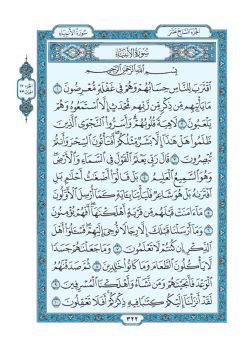 الجزء السابع عشر
سورة الأنبياء
سُورَةُ الأَنبِيَاءِ
بِسْمِ ٱللَّهِ ٱلرَّحْمَٰنِ ٱلرَّحِيمِ
ٱقْتَرَبَ لِلنَّاسِ حِسَابُهُمْ وَهُمْ فِى غَفْلَةٍ مُّعْرِضُونَ ١
مَا يَأْتِيهِم مِّن ذِكْرٍ مِّن رَّبِّهِم مُّحْدَثٍ إِلَّا ٱسْتَمَعُوهُ وَهُمْ
يَلْعَبُونَ ٢ لَاهِيَةً قُلُوبُهُمْ وَأَسَرُّوا۟ ٱلنَّجْوَى ٱلَّذِينَ
ظَلَمُوا۟ هَلْ هَٰذَآ إِلَّا بَشَرٌ مِّثْلُكُمْ أَفَتَأْتُونَ ٱلسِّحْرَ وَأَنتُمْ
تُبْصِرُونَ ٣ قَالَ رَبِّى يَعْلَمُ ٱلْقَوْلَ فِى ٱلسَّمَآءِ وَٱلْأَرْضِ
وَهُوَ ٱلسَّمِيعُ ٱلْعَلِيمُ ٤ بَلْ قَالُوٓا۟ أَضْغَٰثُ أَحْلَٰمٍ بَلِ
ٱفْتَرَىٰهُ بَلْ هُوَ شَاعِرٌ فَلْيَأْتِنَا بِـَٔايَةٍ كَمَآ أُرْسِلَ ٱلْأَوَّلُونَ ٥
مَآ ءَامَنَتْ قَبْلَهُم مِّن قَرْيَةٍ أَهْلَكْنَٰهَآ أَفَهُمْ يُؤْمِنُونَ ٦
وَمَآ أَرْسَلْنَا قَبْلَكَ إِلَّا رِجَالًا نُّوحِىٓ إِلَيْهِمْ فَسْـَٔلُوٓا۟ أَهْلَ
ٱلذِّكْرِ إِن كُنتُمْ لَا تَعْلَمُونَ ٧ وَمَا جَعَلْنَٰهُمْ جَسَدًا
لَّا يَأْكُلُونَ ٱلطَّعَامَ وَمَا كَانُوا۟ خَٰلِدِينَ ٨ ثُمَّ صَدَقْنَٰهُمُ
ٱلْوَعْدَ فَأَنجَيْنَٰهُمْ وَمَن نَّشَآءُ وَأَهْلَكْنَا ٱلْمُسْرِفِينَ ٩
لَقَدْ أَنزَلْنَآ إِلَيْكُمْ كِتَٰبًا فِيهِ ذِكْرُكُمْ أَفَلَا تَعْقِلُونَ ١٠
٣٢٢